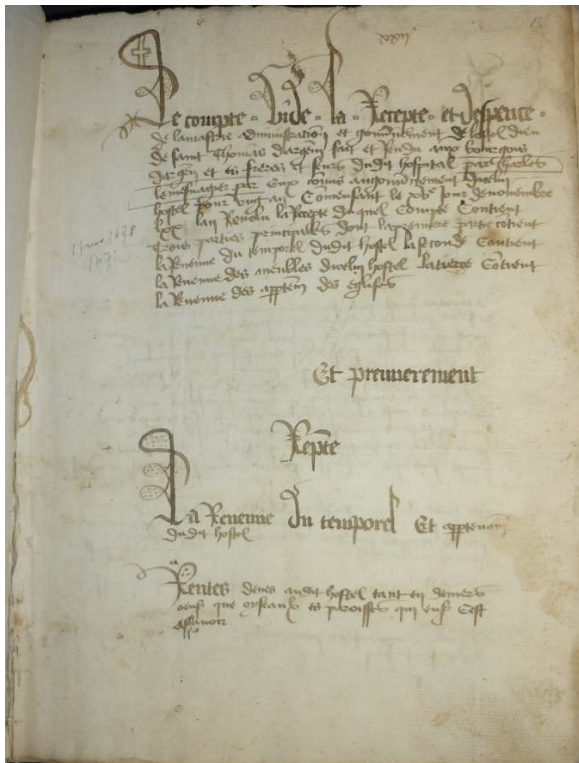 xxii
Le compte Vide la Recepte et despence
de la maistre administracion et gouvernement de lostel dieu
de saint Thomas dargen fait et Rendu aux bourgois
dargen et es freres et seurs dudit hospital par Charles
lemesnagier par Eulx commis au gouvernement dicelui
hostel pour ung an Commensant le jour de novembre
lan Revolu la Recepte duquel Compte Contient
trois parties principalles dont la premiere partie contient
la Revenue du temporel dudit hostel la seconde Contient
la Revenue des meubles dicelui hostel la tierce Contient
la Revenue des des eglises
Et premierement
Repte
La Revenue du temporel Et
dudit hostel
Rentes deues audit hostel tant en deniers
oeufs que oyseaulx es paroisses qui ensuivent Cest
assavoir